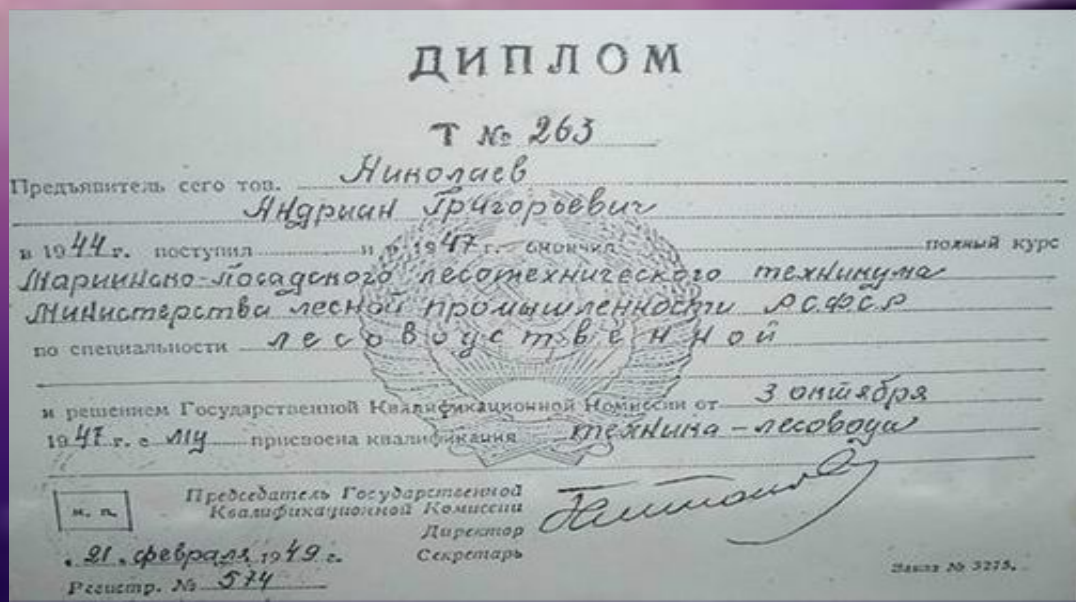 ДИПЛОМ
Т № 263
Предъявитель сего тов. Николаев
Андриан Григорьевич
в 1944 г. поступил и в 1947 г. окончил полный курс
Мариинско-Посадского лесотехнического техникума
Министерства лесной промышленности Р.С.Ф.С.Р
по специальности лесоводственной
и решением Государственной Квалификационной Комиссии от 3 октября
1947 г. е му присвоена квалификация техника-лесовода
Председатель Государственной
Квалификационной Комиссии
м. п.
Директор
21 февраля 1949 г. Секретарь
Регистр. № 574
Заказ № 3275.